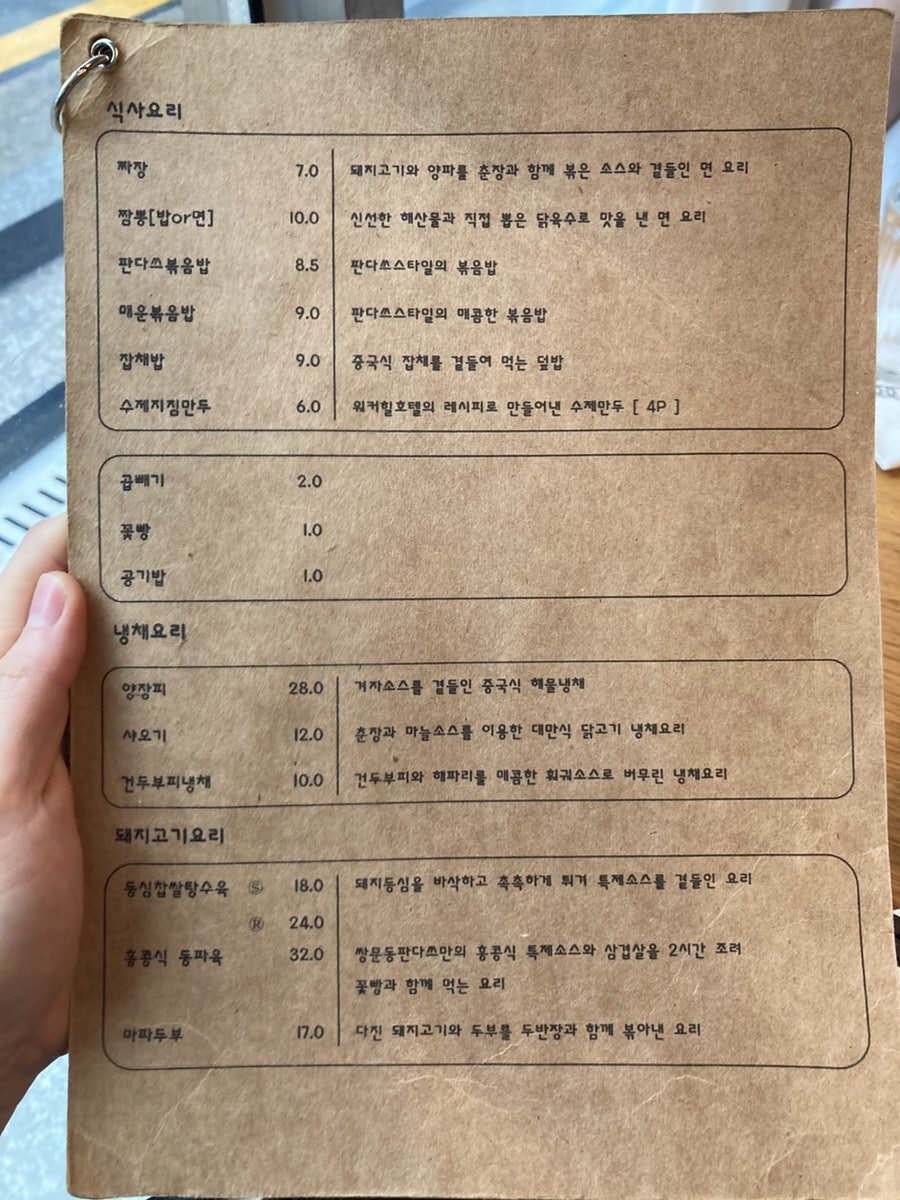 식사요리
짜장 7.0 돼지고기와 양파를 춘장과 함께 볶은 소스와 곁들인 면 요리
짬뽕[밥or면] 10.0 신선한 해산물과 직접 뽑은 닭육수로 맛을 낸 면 요리
판다쓰볶음밥 8.5 판다쓰스타일의 볶음밥
매운볶음밥 9.0 판다쓰스타일의 매콤한 볶음밥
잡채밥 9.0 중국식 잡채를 곁들여 먹는 덮밥
수제지짐만두 6.0 워커힐호텔의 레시피로 만들어낸 수제만두 [ 4P ]
곱빼기 2.0
꽃빵 1.0
공기밥 1.0
냉채요리
양장피 28.0 겨자소스를 곁들인 중국식 해물냉채
샤오기 12.0 춘장과 마늘소스를 이용한 대만식 닭고기 냉채요리
건두부피냉채 10.0 건두부피와 해파리를 매콤한 훠궈소스로 버무린 냉채요리
돼지고기요리
등심찹쌀탕수육 Ⓢ 18.0 돼지등심을 바삭하고 촉촉하게 튀겨 특제소스를 곁들인 요리
Ⓡ 24.0
홍콩식 동파육 32.0 쌍문동판다쓰만의 홍콩식 특제소스와 삼겹살을 2시간 조려
꽃빵과 함께 먹는 요리
마파두부 17.0 다진 돼지고기와 두부를 두반장과 함께 볶아낸 요리